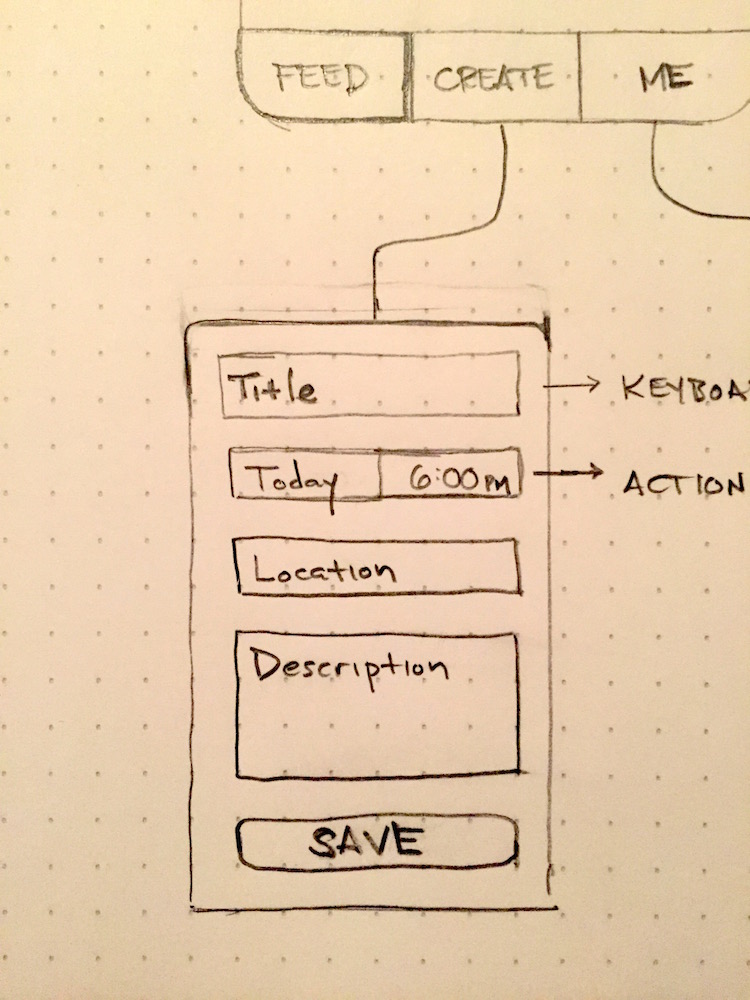 FEED CREATE ME
Title
KEYBOA
Today 6:00PM
ACTION
Location
Description
SAVE